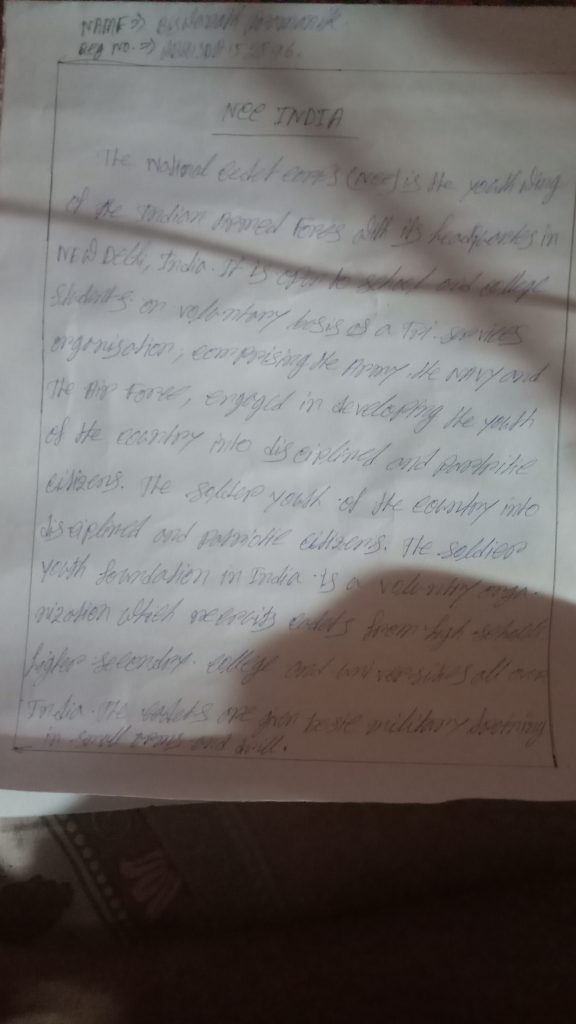 NAME⇒
REG NO.⇒
NCC INDIA
The National Cadet corps (NCC) is the youth wing
of the Indian Armed Forces with its headquarters in
NEW Delhi, India. It is open to school and college
students on voluntary basis as a Tri-services
organisation, comprising the Army, the NAVY and
The Air Force, engaged in developing the youth
of the country into disciplined and patriotic
citizens. The soldier youth of the country into
disciplined and patriotic citizens. The soldier
youth foundation in India is a voluntry orga-
nization which recruits cadets from high schools
higher secondry. college and universities all over
India. The cadets are given basic military training
in small arms and drill.